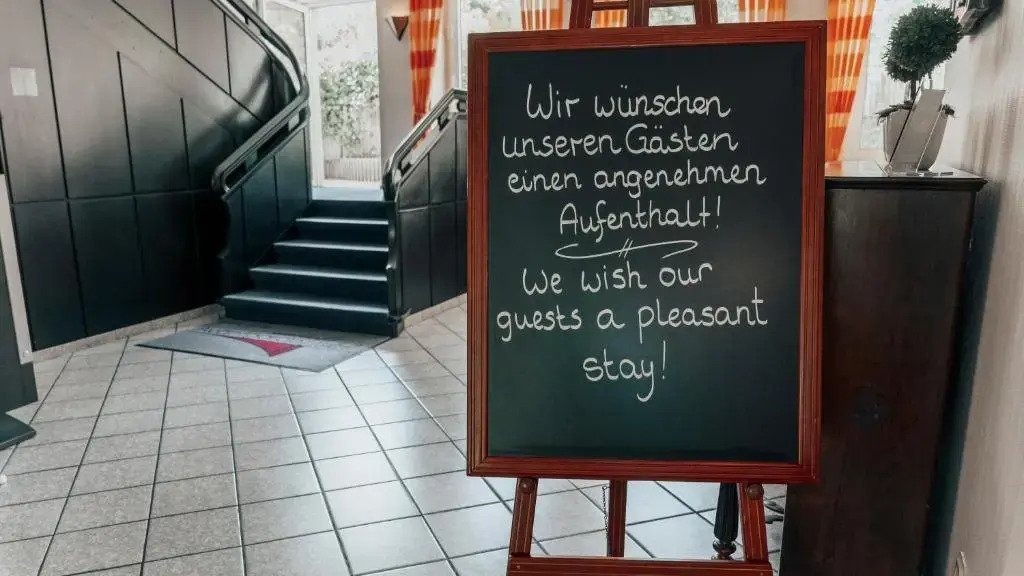 Wir wünschen
unseren Gästen
einen angenehmen
Aufenthalt!
We wish our
guests a pleasant
stay!